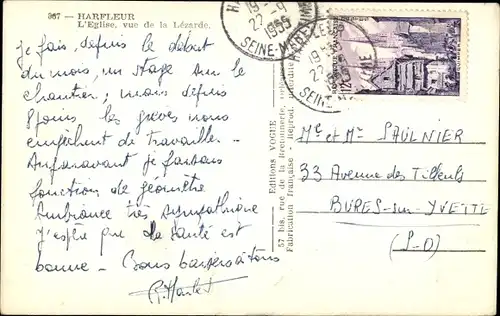 367 - HARFLEUR
L'Eglise, vue de la Lézarde.
je fais, depuis le début
du mois, un stage sur le
chantier ; mais depuis
8 jours les grèves nous
empêchent de travailler -
Auparavant je faisais
fonction de géomètre
Ambiance très sympathique
J'espère que la santé est
bonne - Bons baisers à tous
Editions VOGUE
57 bis, rue de la
Fabrication française - Reprod. interdite
19-
22-9
1955
SEINE-M
HARFLEUR
19-
22-9
1955
SEINE-M
12F
Me et Mr SAULNIER
33 Avenue des Tilleuls
BURES-sur-YVETTE
(S-O)